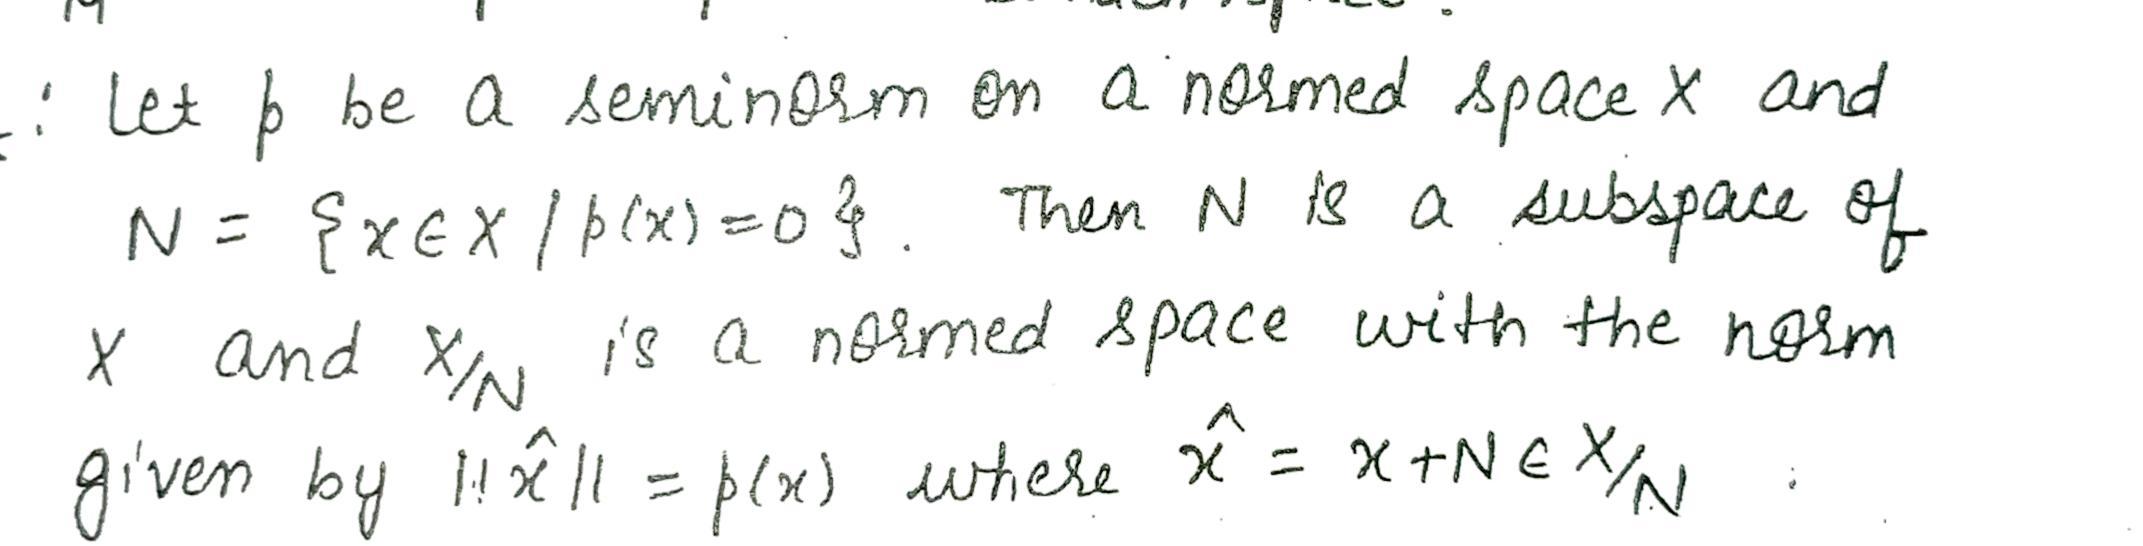 : Let p be a seminorm on a normed space X and
N = {x∈X / p(x)=0}. Then N is a subspace of
X and X/N is a normed space with the norm
given by ||x̂|| = p(x) where x̂ = x+N ∈ X/N